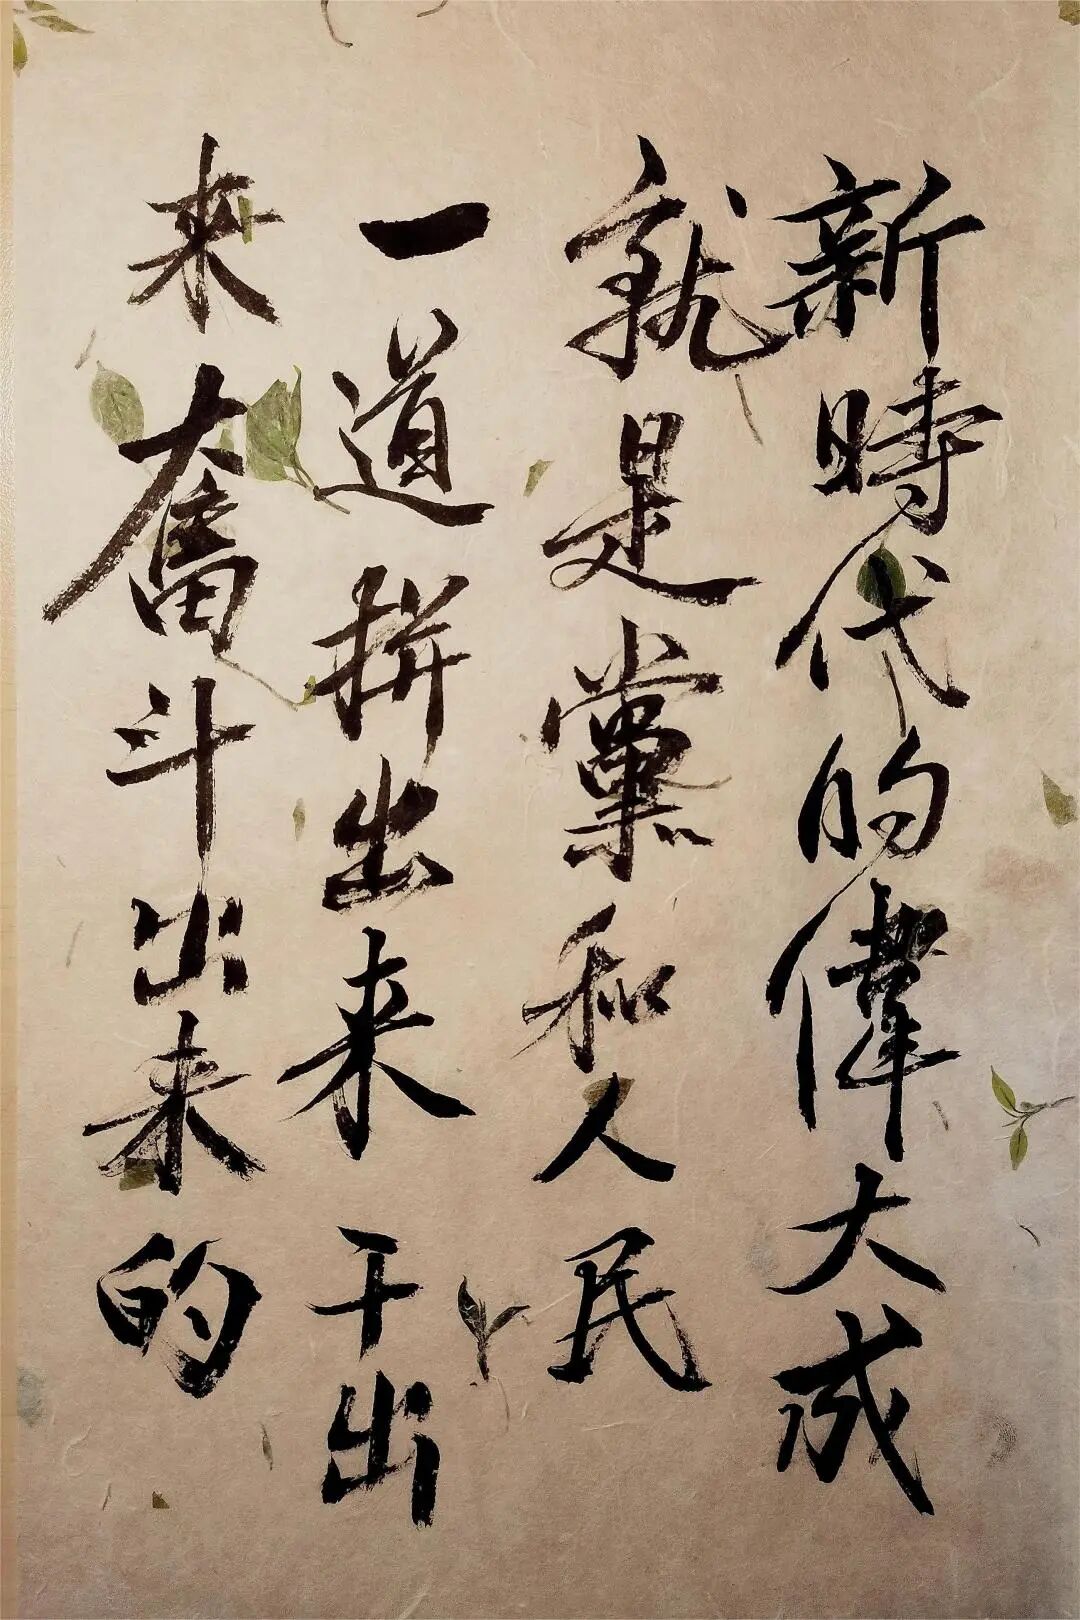 新時代的偉大成
就是黨和人民
一道拼出来干出
来奮斗出来的